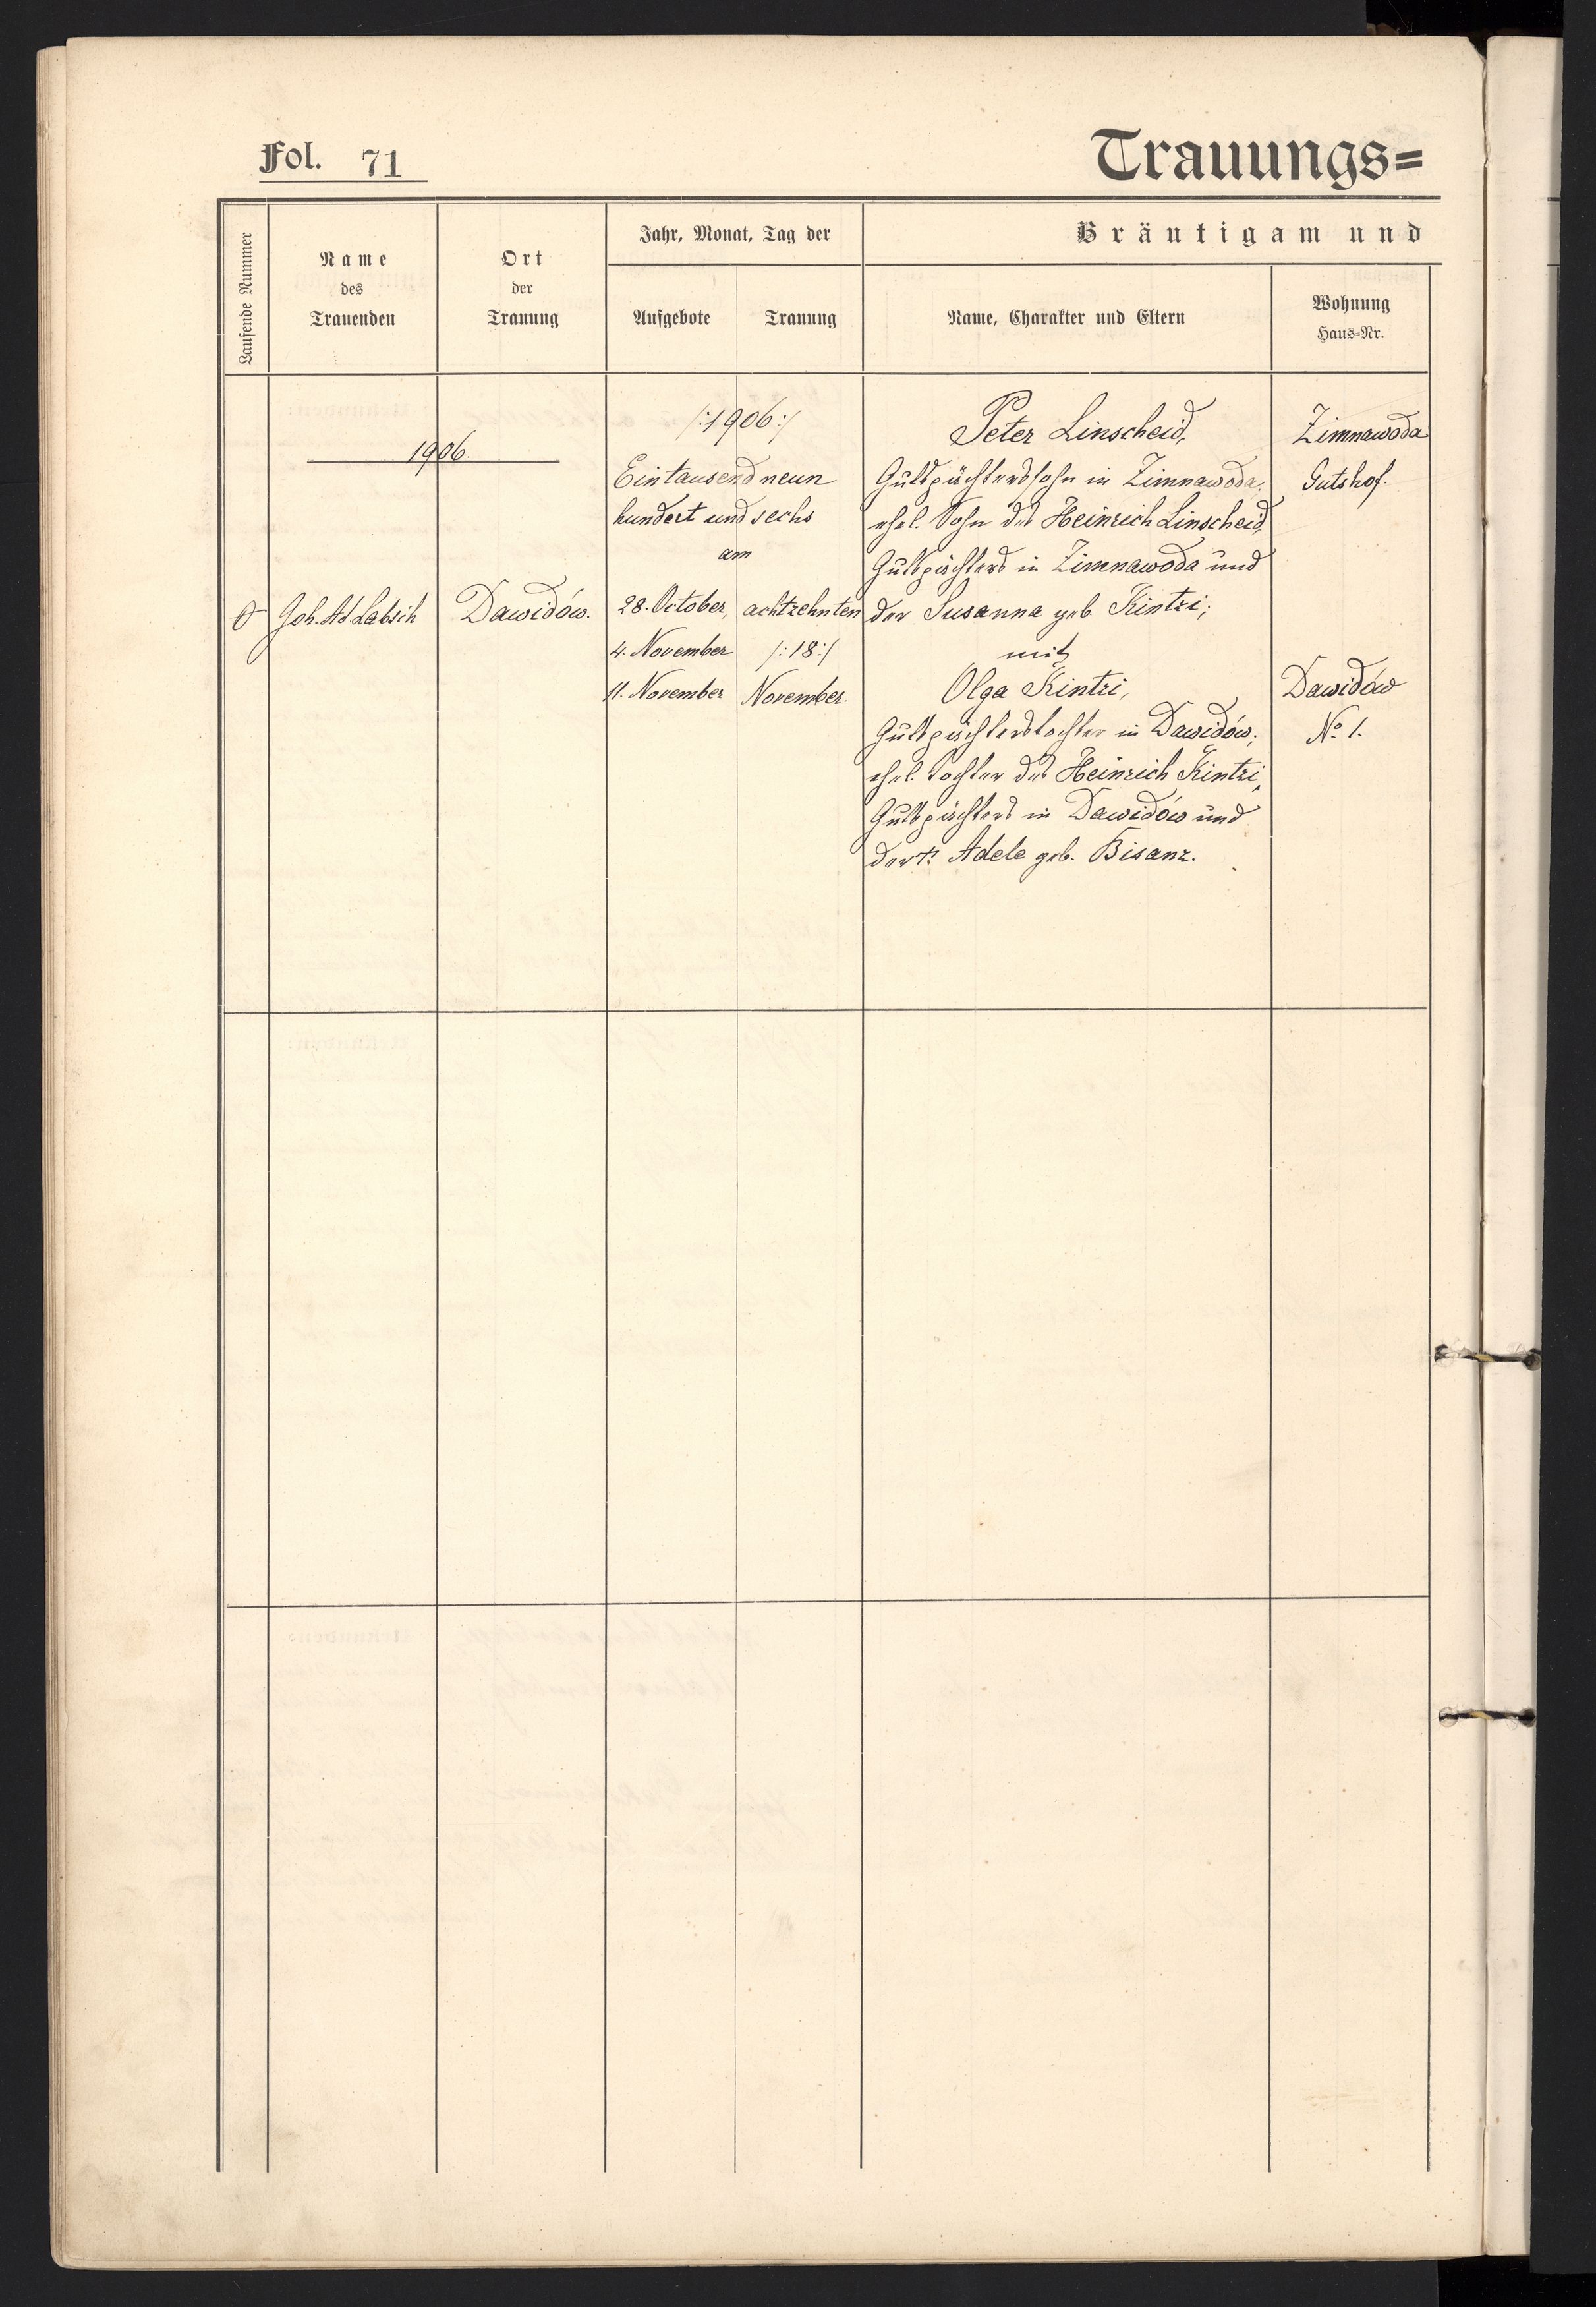 Fol. 71
Trauungs=
Laufende Nummer
Name
des
Trauenden
Ort
der
Trauung
Jahr, Monat, Tag der
Aufgebote
Trauung
Bräutigam und
Name, Charakter und Eltern
Wohnung
Haus-Nr.
1906.
Joh. Ad. Labsik
Dawidów.
/:1906:/
Eintausend neun
hundert und sechs
am
28. October,
4. November
11. November
achtzehnten
/:18:/
November.
Peter Linscheid,
Gutspächterssohn in Zimnawoda,
ehel. Sohn des Heinrich Linscheid,
Gutspächters in Zimnawoda und
der Susanna geb. Kintzi;
mit
Olga Kintzi,
Gutspächterstochter in Dawidów;
ehel. Tochter des Heinrich Kintzi,
Gutspächters in Dawidów und
der † Adele geb. Bisanz.
Zimnawoda
Gutshof.
Dawidów
No. 1.